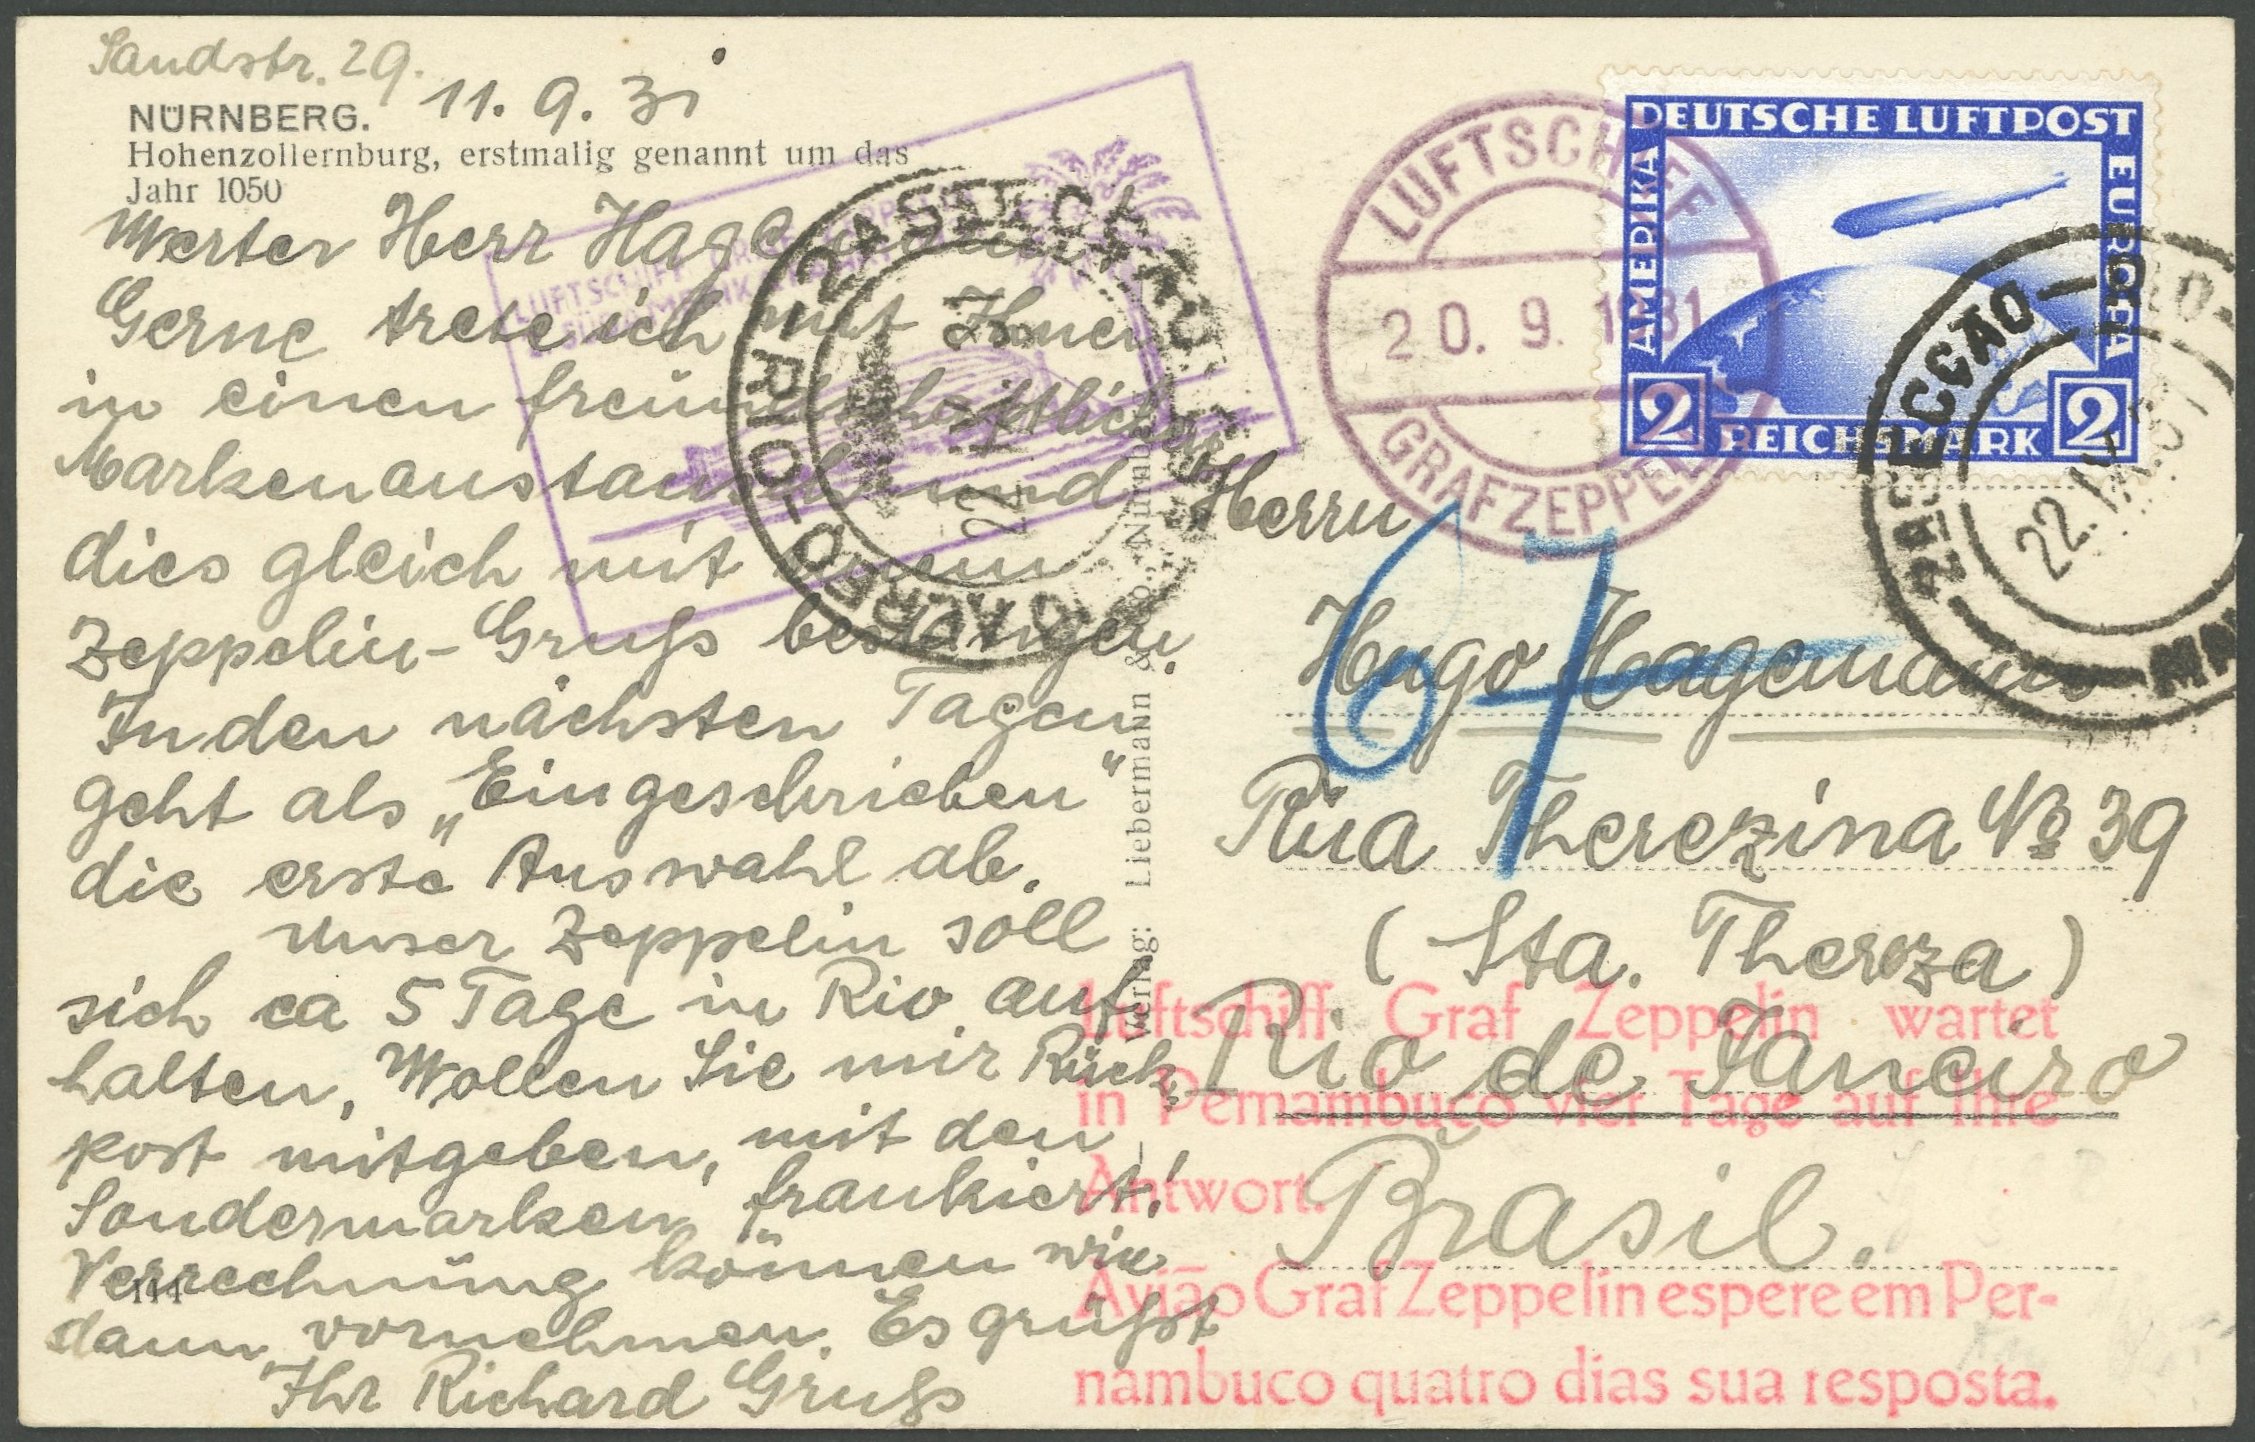 Sandstr. 29.
11. 9. 31
NÜRNBERG.
Hohenzollernburg, erstmalig genannt um das
Jahr 1050
Werter Herr Hagemann!
Gerne trete ich mit Ihnen
in einen freundschaftlichen
Markenaustausch und
dies gleich mit einem
Zeppelin-Gruß bestätigen.
In den nächsten Tagen
geht als „Eingeschrieben"
die erste Auswahl ab.
Unser Zeppelin soll
sich ca 5 Tage in Rio auf
halten, Wollen Sie mir Rück
post mitgeben, mit den
Sondermarken frankiert!
Verrechnung können wir
dann vornehmen. Es grüßt
Ihr Richard Gruß
144
Verlag: Liebermann & Co., Nürnberg
LUFTSCHIFF
20. 9. 1931
GRAF ZEPPELIN
DEUTSCHE LUFTPOST
AMERIKA
EUROPA
2 REICHSMARK 2
2ASECCAO
22.IX.31
2ASECCAO
22
RIO-D
LUFTSCHIFF GRAF ZEPPELIN
Herrn
67
Hugo Hagemann
Rua Therezina No 39
(Sta. Thereza)
Rio de Janeiro
Brasil.
Luftschiff Graf Zeppelin wartet
in Pernambuco vier Tage auf Ihre
Antwort.
Avião Graf Zeppelin espere em Per-
nambuco quatro dias sua resposta.